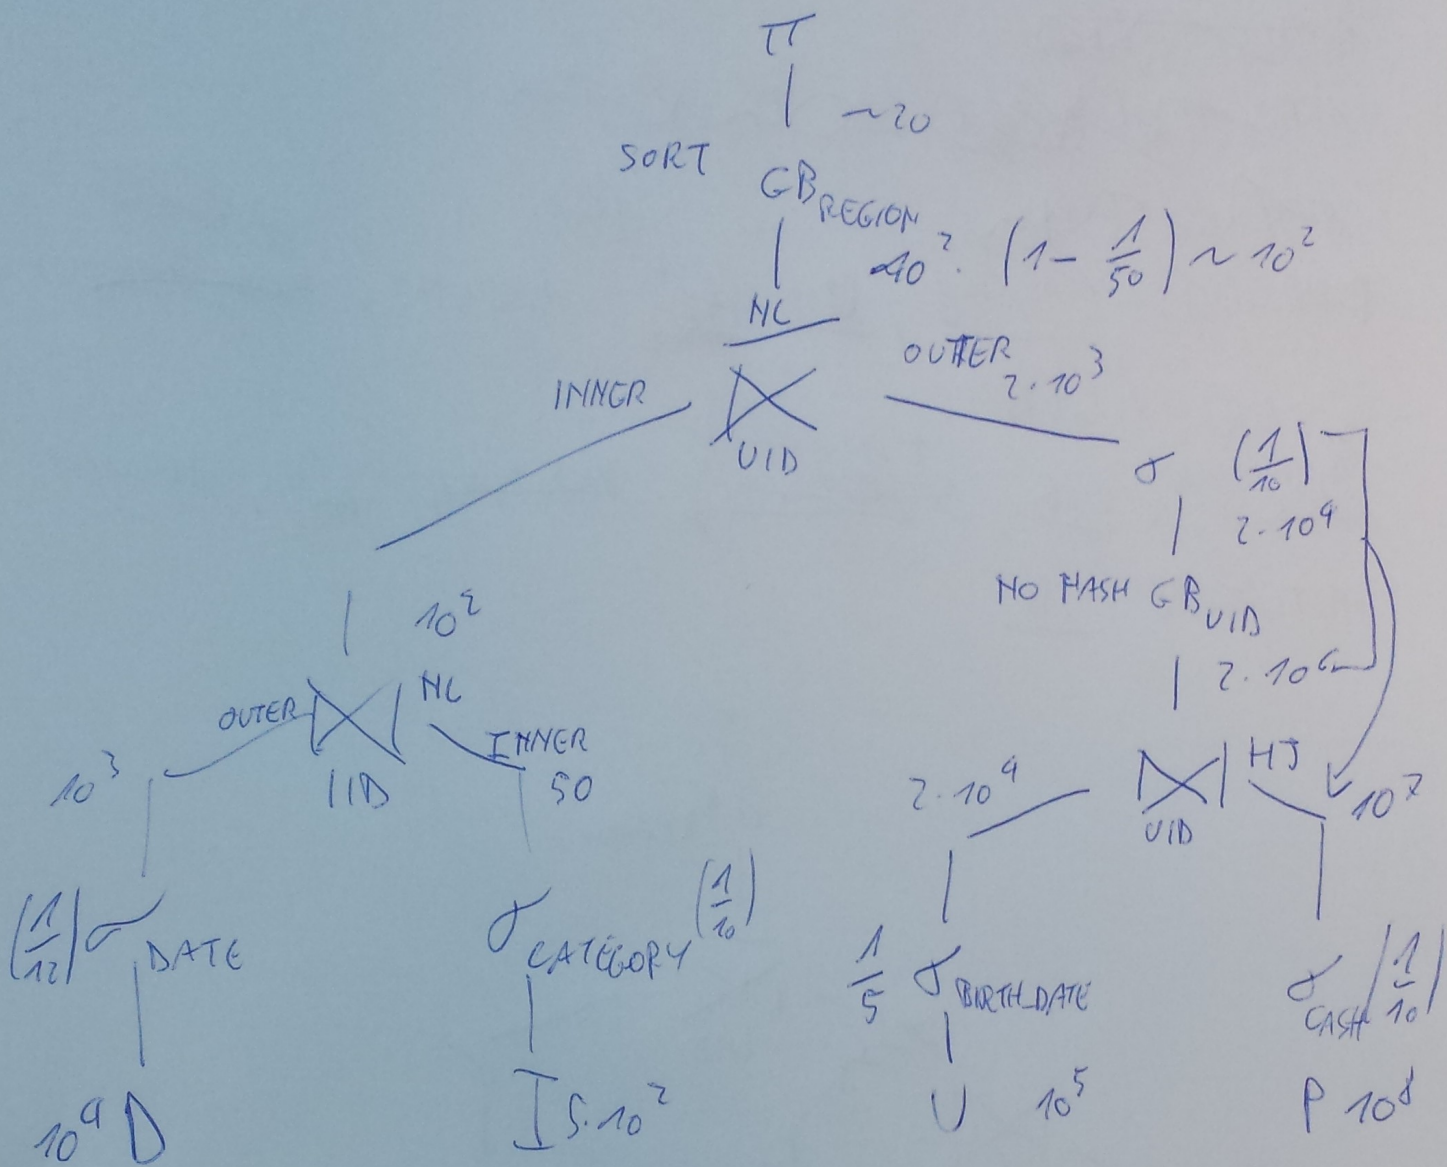 π
~20
SORT GB REGION
10² · (1 - 1/50) ~ 10²
NL
INNER ⋈ UID OUTER 2·10³
σ (1/10)
2·10⁴
NO HASH GB UID
10² 2·10⁶
OUTER ⋈ NL INNER
10³ IID 50
2·10⁴ ⋈ HJ 10⁷
UID
(1/12) σ DATE σ CATEGORY (1/10)
1/5 σ BIRTH_DATE σ CASH (1/10)
10⁴ D I 5·10² U 10⁵ P 10⁸